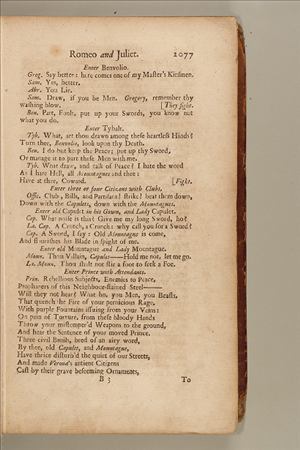 Romeo and Juliet. 2077
Enter Benvolio.
Greg. Say better: here comes one of my Master's Kinsmen.
Sam. Yes, better.
Abr. You Lie.
Sam. Draw, if you be Men. Gregory, remember thy
washing blow. [They fight.
Ben. Part, Fools, put up your Swords, you know not
what you do.
Enter Tybalt.
Tyb. What, art thou drawn among these heartless Hinds?
Turn thee, Benvolio, look upon thy Death.
Ben. I do but keep the Peace; put up thy Sword,
Or manage it to part these Men with me.
Tyb. What draw, and talk of Peace? I hate the word
As I hate Hell, all Mountagues and thee:
Have at thee, Coward. [Fight.
Enter three or four Citizens with Clubs.
Offic. Clubs, Bills, and Partisans! strike! beat them down,
Down with the Capulets, down with the Mountagues.
Enter old Capulet in his Gown, and Lady Capulet.
Cap. What noise is this? Give me my long Sword, ho!
La. Cap. A Crutch, a Crutch: why call you for a Sword?
Cap. A Sword, I say: Old Mountague is come,
And flourishes his Blade in spight of me.
Enter old Mountague and Lady Mountague.
Moun. Thou Villain, Capulet—— Hold me not, let me go.
La. Moun. Thou shalt not stir a foot to seek a Foe.
Enter Prince with Attendants.
Prin. Rebellious Subjects, Enemies to Peace,
Prophaners of this Neighbour-stained Steel——
Will they not hear? What ho, you Men, you Beasts,
That quench the Fire of your pernicious Rage,
With purple Fountains issuing from your Veins:
On pain of Torture, from these bloody Hands
Throw your mistemper'd Weapons to the ground,
And hear the Sentence of your moved Prince.
Three civil Broils, bred of an airy word,
By thee, old Capulet, and Mountague,
Have thrice disturb'd the quiet of our Streets,
And made Verona's antient Citizens
Cast by their grave beseeming Ornaments,
B 3 To